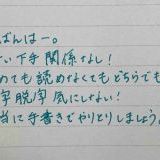 ばんはー。
い下手関係なし！
めても読めなくてもどちらでも
字脱字気にしない！
当に手書きでやりとりしましょう